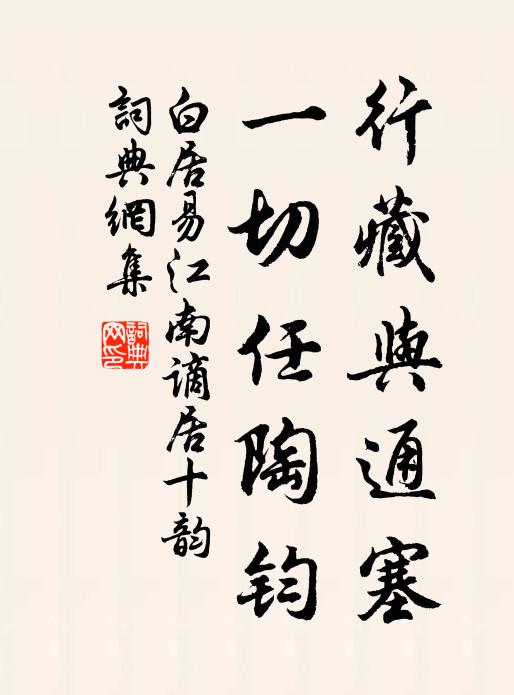 行藏與通塞
一切任陶鈞
白居易江南谪居十韵
詞典網集
詞典網印